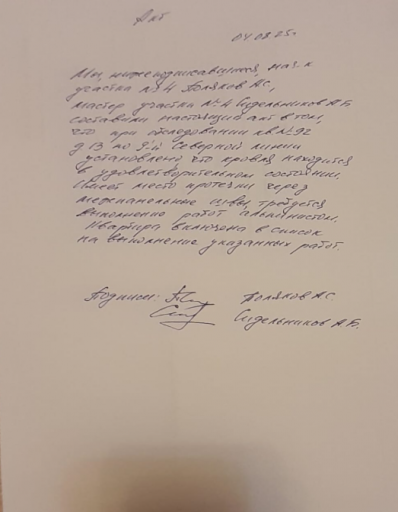 Акт
04.08.25г
Мы, нижеподписавшиеся, нач-к
участка №4 Поляков АС,
мастер участка №4 Сидельников АБ
составили настоящий акт в том,
что при обследовании кв №92
д 13 по 9-й Северной линии
установлено что кровля находится
в удовлетворительном состоянии.
Имеет место протечки через
межпанельные швы, требуется
выполнение работ альпинистом.
Квартира включена в список
на выполнение указанных работ.
Подписи: Поляков АС.
Сидельников А.Б.